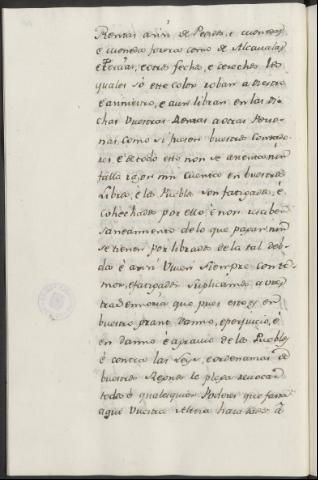 Rentas asi de Pedidos, e monedas
e moneda forera como de Alcavalas
e tercias, e otros pechos, e derechos, los
quales só este color roban a diestro
é siniestro, e aun libran en las di
chas Vuestras Rentas a otras Perso
nas, como si fuesen buestros Contado
res é de todo esto non se asienta nin
falla razon nin cuenta en buestros
Libros, é los Pueblos son fatigados, é
cohechados por ello é non resciben
saneamiento de lo que pagan nin
se tienen por librados de la tal deb
da é asi Viven siempre con te
mor, é fatigados Suplicamos a vues
tra Señoria que pues esto es en
buestro grane danno, e perjuicio, é
en danno e agravio de los Pueblos
é contra las Leys, e ordenanzas de
buestros Regnos le plega revocar
todos é qualesquier Poderes que fasta
aqui Vuestra Alteza haia dado á